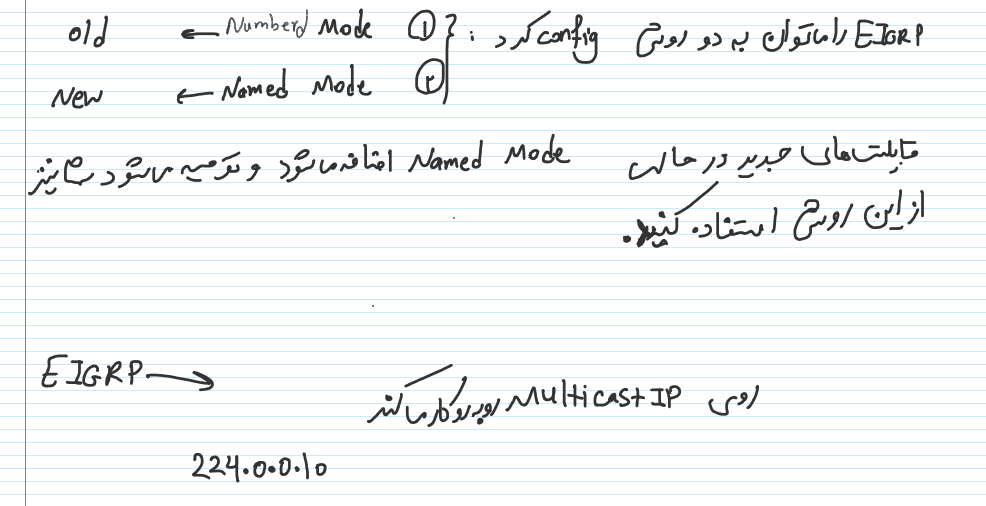 EIGRP را می‌توان به دو روش config کرد : { ① Numberd Mode ← old
② Named Mode ← New
قابلیت‌های جدید در حالت Named Mode اضافه می‌شود و توصیه می‌شود شما نیز
از این روش استفاده کنید.
EIGRP →
روی Multicast IP روبرو کار می‌کند
224.0.0.10